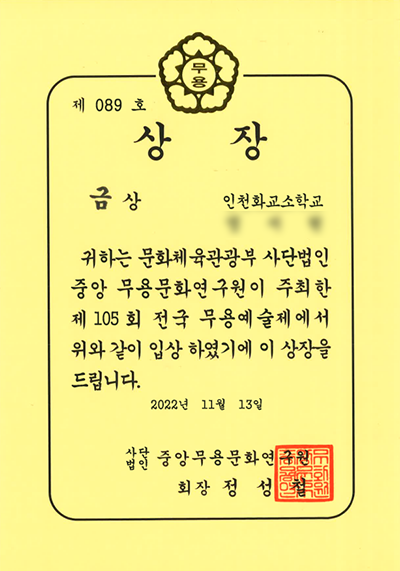 무용
제 089 호
상 장
금 상
인천화교소학교
귀하는 문화체육관광부 사단법인
중앙 무용문화연구원이 주최한
제 105 회 전국 무용예술제에서
위와 같이 입상 하였기에 이 상장을
드립니다.
2022년 11월 13일
사단법인 중앙무용문화연구원
회장 정 성 철